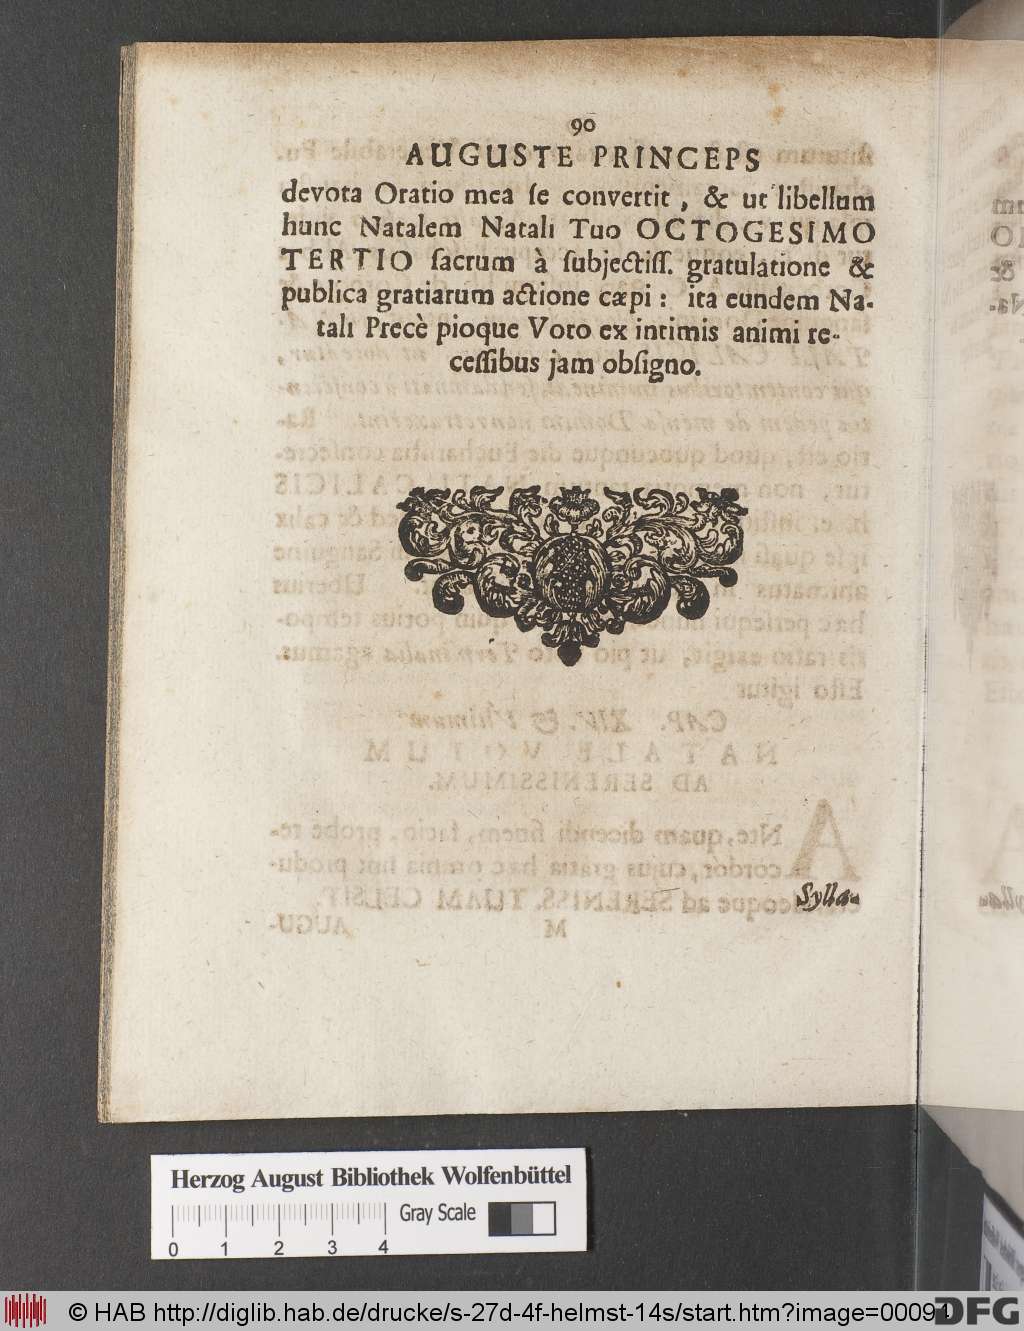 90
AUGUSTE PRINCEPS
devota Oratio mea ſe convertit, & ut libellum
hunc Natalem Natali Tuo OCTOGESIMO
TERTIO ſacrum à ſubjectiſſ. gratulatione &
publica gratiarum actione cæpi: ita eundem Na-
tali Precè pioque Voto ex intimis animi re-
ceſſibus jam obſigno.
Sylla-
Herzog August Bibliothek Wolfenbüttel
Gray Scale
0 1 2 3 4
© HAB http://diglib.hab.de/drucke/s-27d-4f-helmst-14s/start.htm?image=00094
DFG